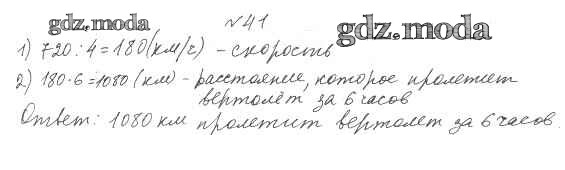 gdz.moda №41 gdz.moda
1) 720:4=180(км/ч) - скорость
2) 180·6=1080 (км) - расстояние, которое пролетит
вертолёт за 6 часов
Ответ: 1080 км пролетит вертолет за 6 часов.